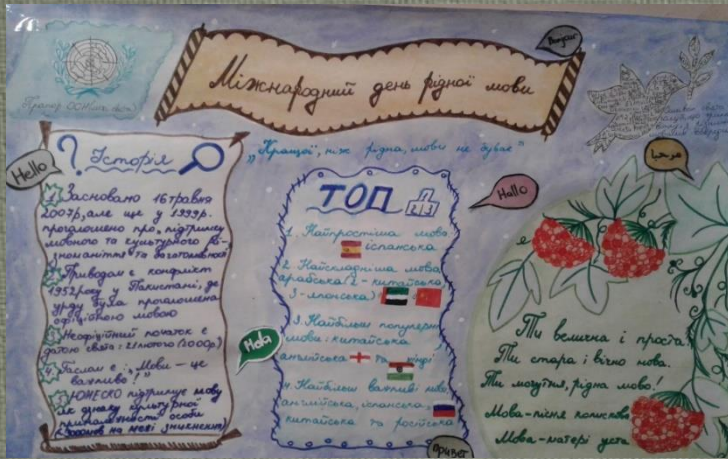 Bonjour
Міжнародний день рідної мови
Прапор ООН
"Кращої, ніж рідна, мови не буває"
Hello
Історія
1. Засновано 16 травня
2007р, але ще у 1999р.
проголошено про підтримку
мовного та культурного рі-
зноманіття та багатомовності
2. Приводом є конфлікт
1952 року у Пакистані, де
урду була проголошена
офіційною мовою
3. Неофіційний початок є
датою свята: 21 лютого (2000р)
4. Гаслом є: „Мови - це
важливо!"
5. ЮНЕСКО підтримує мову
як ознаку культурної
приналежності особи
на межі зникнення
Hola
ТОП
1 2 3
1. Найпростіша мова
іспанська
2. Найскладніша мова
арабська (2 - китайська
3 - японська)
3. Найбільш популярні
мови: китайська
англійська та хінді
4. Найбільш важливі мови
англійська, іспанська,
китайська та російська
Hallo
Привет
مرحبا
Ти велична і проста!
Ти стара і вічно нова.
Ти могутня, рідна мово!
Мова - пісня колискова
Мова - матері уста